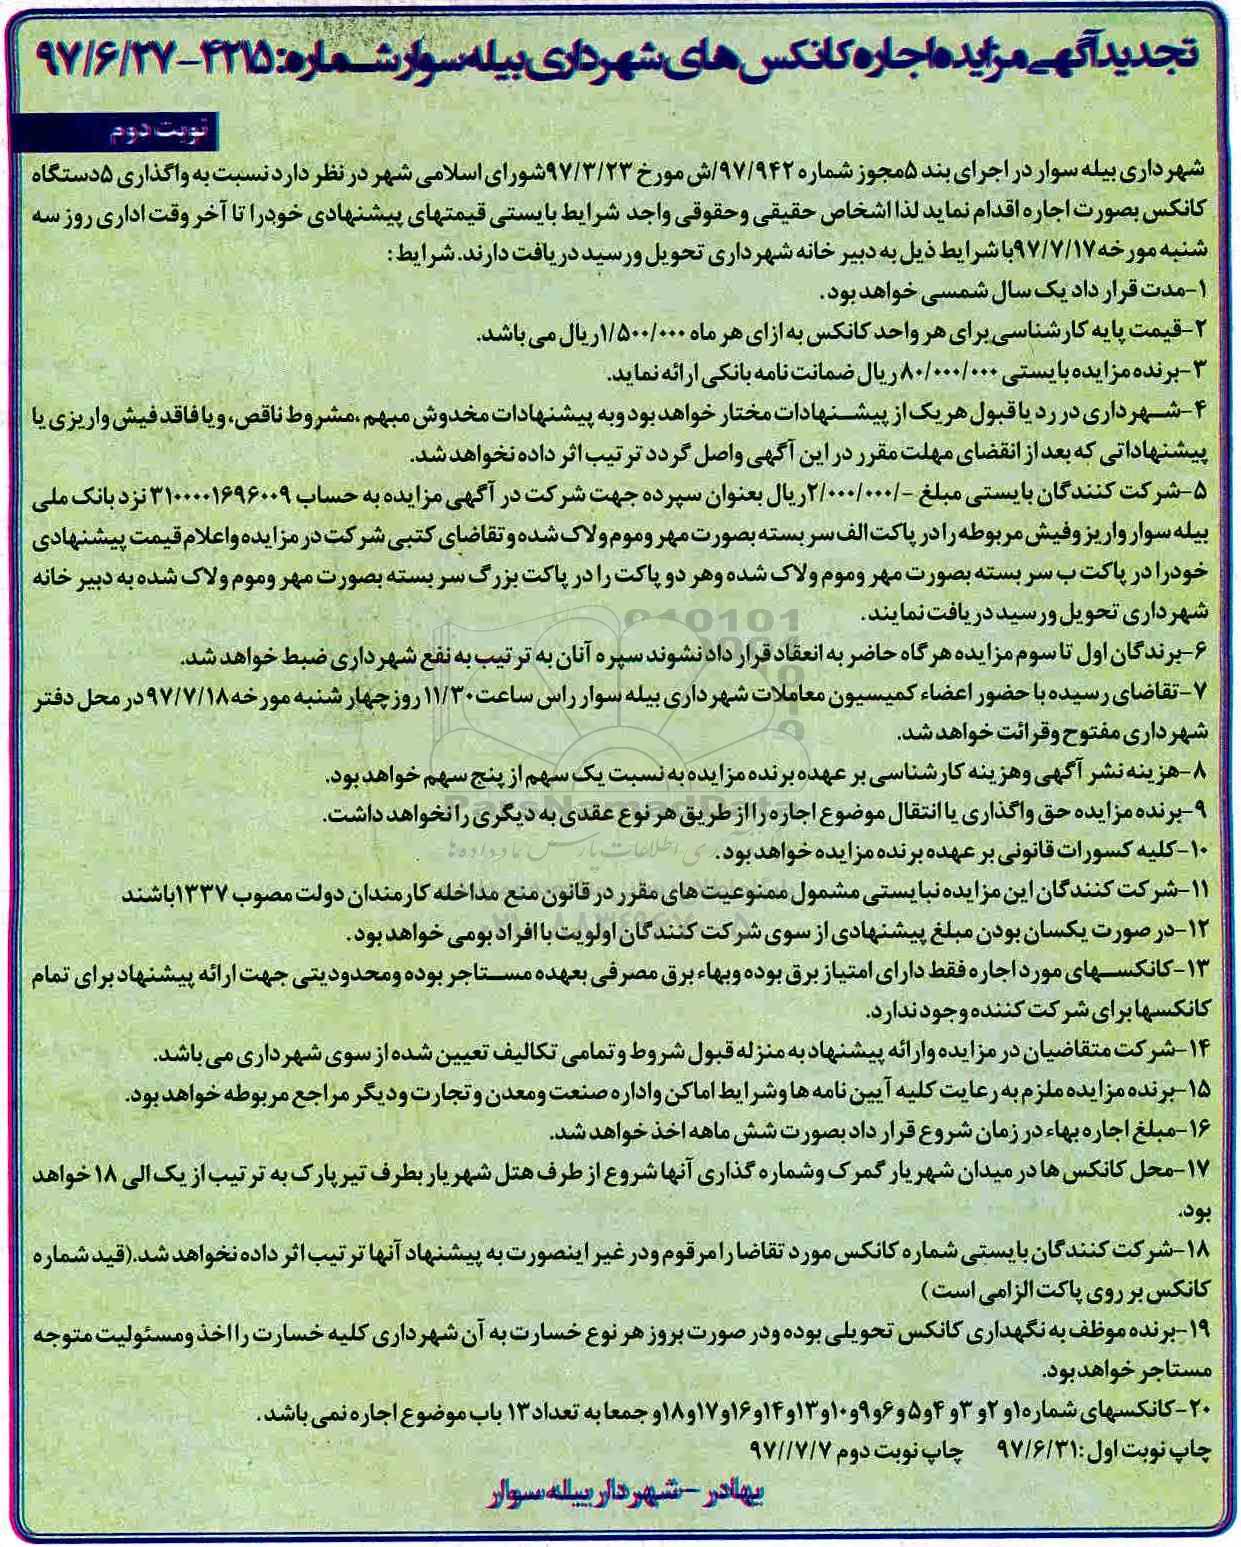 تجدیدآگهی مزایده اجاره کانکس های شهرداری بیله سوار شماره: ۴۲۱۵-۹۷/۶/۲۷
نوبت دوم
شهرداری بیله سوار در اجرای بند ۵ مجوز شماره ۹۷/۹۴۲/ش مورخ ۹۷/۳/۲۳شورای اسلامی شهر در نظر دارد نسبت به واگذاری ۵دستگاه
کانکس بصورت اجاره اقدام نماید لذا اشخاص حقیقی وحقوقی واجد شرایط بایستی قیمتهای پیشنهادی خودرا تا آخر وقت اداری روز سه
شنبه مورخه۹۷/۷/۱۷با شرایط ذیل به دبیر خانه شهرداری تحویل ورسید دریافت دارند. شرایط :
۱-مدت قرار داد یک سال شمسی خواهد بود .
۲-قیمت پایه کارشناسی برای هر واحد کانکس به ازای هر ماه ۱/۵۰۰/۰۰۰ریال می باشد.
۳-برنده مزایده بایستی ۸۰/۰۰۰/۰۰۰ ریال ضمانت نامه بانکی ارائه نماید.
۴-شهرداری در رد یا قبول هریک از پیشنهادات مختار خواهد بود وبه پیشنهادات مخدوش مبهم ،مشروط ناقص، ویا فاقد فیش واریزی یا
پیشنهاداتی که بعد از انقضای مهلت مقرر در این آگهی واصل گردد ترتیب اثر داده نخواهد شد.
۵-شرکت کنندگان بایستی مبلغ -/۲/۰۰۰/۰۰۰ریال بعنوان سپرده جهت شرکت در آگهی مزایده به حساب ۳۱۰۰۰۰۱۶۹۶۰۰۹ نزد بانک ملی
بیله سوار واریز وفیش مربوطه را در پاکت الف سر بسته بصورت مهر وموم ولاک شده وتقاضای کتبی شرکت در مزایده واعلام قیمت پیشنهادی
خودرا در پاکت ب سر بسته بصورت مهر وموم ولاک شده وهر دو پاکت را در پاکت بزرگ سر بسته بصورت مهر وموم ولاک شده به دبیر خانه
شهرداری تحویل ورسید دریافت نمایند .
۶-برندگان اول تا سوم مزایده هرگاه حاضر به انعقاد قرار داد نشوند سپره آنان به ترتیب به نفع شهرداری ضبط خواهد شد.
۷-تقاضای رسیده با حضور اعضاء کمیسیون معاملات شهرداری بیله سوار راس ساعت۱۱/۳۰ روز چهار شنبه مورخه۹۷/۷/۱۸در محل دفتر
شهرداری مفتوح وقرائت خواهد شد.
۸-هزینه نشر آگهی وهزینه کارشناسی بر عهده برنده مزایده به نسبت یک سهم از پنج سهم خواهد بود.
ParsNamadData
۹-برنده مزایده حق واگذاری یا انتقال موضوع اجاره را از طریق هر نوع عقدی به دیگری را نخواهد داشت.
۱۰-کلیه کسورات قانونی بر عهده برنده مزایده خواهد بود .
۱۱-شرکت کنندگان این مزایده نبایستی مشمول ممنوعیت های مقرر در قانون منع مداخله کارمندان دولت مصوب ۱۳۳۷باشند
۱۲-در صورت یکسان بودن مبلغ پیشنهادی از سوی شرکت کنندگان اولویت با افراد بومی خواهد بود .
۱۳-کانکسهای مورد اجاره فقط دارای امتیاز برق بوده وبهاء برق مصرفی بعهده مستاجر بوده ومحدودیتی جهت ارائه پیشنهاد برای تمام
کانکسها برای شرکت کننده وجود ندارد.
۱۴-شرکت متقاضیان در مزایده وارائه پیشنهاد به منزله قبول شروط وتمامی تکالیف تعیین شده از سوی شهرداری می باشد.
۱۵-برنده مزایده ملزم به رعایت کلیه آیین نامه ها وشرایط اماکن واداره صنعت ومعدن وتجارت ودیگر مراجع مربوطه خواهد بود.
۱۶-مبلغ اجاره بهاء در زمان شروع قرار داد بصورت شش ماهه اخذ خواهد شد.
۱۷-محل کانکس ها در میدان شهریار گمرک وشماره گذاری آنها شروع از طرف هتل شهریار بطرف تیرپارک به ترتیب از یک الی ۱۸ خواهد
بود.
۱۸-شرکت کنندگان بایستی شماره کانکس مورد تقاضا را مرقوم ودر غیر اینصورت به پیشنهاد آنها ترتیب اثر داده نخواهد شد.(قید شماره
کانکس بر روی پاکت الزامی است )
۱۹-برنده موظف به نگهداری کانکس تحویلی بوده ودر صورت بروز هر نوع خسارت به آن شهرداری کلیه خسارت را اخذ ومسئولیت متوجه
مستاجر خواهد بود.
۲۰-کانکسهای شماره۱و ۲و ۳و ۴و۵ و۶و ۹و۱۰و۱۳و۱۴و۱۶و۱۷و۱۸و جمعا به تعداد ۱۳ باب موضوع اجاره نمی باشد .
چاپ نوبت اول :۹۷/۶/۳۱ چاپ نوبت دوم ۹۷//۷/۷
بهادر - شهردار بیله سوار